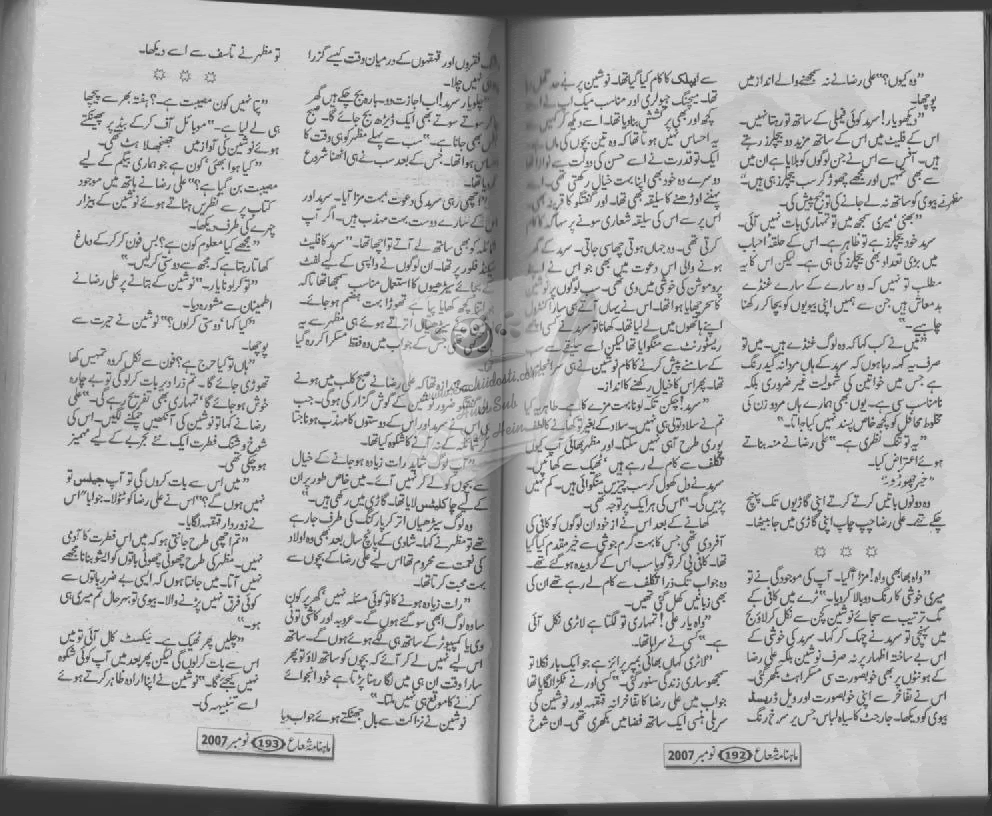 ”وہ کیوں؟“ علی رضا نے نہ سمجھنے والے انداز میں
پوچھا۔
”دیکھو یار! سرمد کوئی فیملی کے ساتھ تو رہتا نہیں۔
اس کے فلیٹ میں اس کے ساتھ مزید دو بیچلرز رہتے
ہیں۔ آفس سے اس نے جن لوگوں کو بلایا ہے ان میں
سے بھی تمہیں اور مجھے چھوڑ کر سب بیچلرز ہی ہیں۔“
مظہر نے بیوی کو ساتھ نہ لے جانے کی توجیح پیش کی۔
”بھئی‘ میری سمجھ میں تو تمہاری بات نہیں آئی۔
سرمد خود بیچلرز ہے تو ظاہر ہے۔ اس کے حلقہ احباب
میں بڑی تعداد بھی بیچلرز کی ہی ہے۔ لیکن اس کا یہ
مطلب تو نہیں کہ وہ سارے کے سارے غنڈے
بدمعاش ہیں جن سے ہمیں اپنی بیویوں کو بچا کر رکھنا
چاہیے۔“
”میں نے کب کہا کہ وہ لوگ غنڈے ہیں۔ میں تو
صرف یہ کہہ رہا ہوں کہ سرمد کے ہاں مردانہ گیدرنگ
ہے جس میں خواتین کی شمولیت غیر ضروری بلکہ
نامناسب سی ہے۔ یوں بھی ہمارے ہاں مرد و زن کی
مخلوط محافل کو کچھ خاص پسند نہیں کیا جاتا۔“
”یہ تو تنگ نظری ہے۔“ علی رضا نے منہ بناتے
ہوئے اعتراض کیا۔
”خیر چھوڑو۔“
وہ دونوں باتیں کرتے کرتے اپنی گاڑیوں تک پہنچ
چکے تھے۔ علی رضا چپ چاپ اپنی گاڑی میں جا بیٹھا۔
”واہ بھابھی واہ! مزا آ گیا۔ آپ کی موجودگی نے تو
میری خوشی کا رنگ دوبالا کر دیا۔“ ٹرے میں کافی کے
مگ ترتیب سے سجائے نوشین کچن سے نکل کر لاؤنج
میں پہنچی تو سرمد نے چہک کر کہا۔ سرمد کی خوشی کے
اس بے ساختہ اظہار پر نہ صرف نوشین بلکہ علی رضا
کے ہونٹوں پر بھی خوبصورت سی مسکراہٹ بکھر گئی۔
اس نے تفاخر سے اپنی خوبصورت اور ویل ڈریسڈ
بیوی کو دیکھا۔ جارجٹ کا سیاہ لباس جس پر سرخ رنگ
سے کا کام کیا گیا تھا۔ نوشین پر بے حد
تھا۔ میچنگ جیولری اور مناسب میک اپ نے اسے
کچھ اور بھی پرکشش بنا دیا تھا۔ اسے دیکھ کر کہیں سے
یہ احساس نہیں ہوتا تھا کہ وہ تین بچوں کی ماں ہے۔
ایک تو قدرت نے اسے حسن کی دولت سے نوازا تھا
دوسرے وہ خود بھی اپنا بہت خیال رکھتی تھی۔ اسے
پہننے اوڑھنے کا سلیقہ بھی تھا۔ اور گفتگو کا قرینہ بھی۔
اس پر سے اس کی سلیقہ شعاری سونے پر سہاگہ کا کام
کرتی تھی۔ وہ جہاں ہوتی چھا سی جاتی۔ سرمد کے گھر
ہونے والی اس دعوت میں بھی جو اس نے اپنے
پروموشن کی خوشی میں دی تھی۔ سب لوگوں پر نوشین
کا سحر چھایا ہوا تھا۔ اس نے یہاں آتے ہی سارا کنٹرول
اپنے ہاتھوں میں لے لیا تھا۔ کھانا تو سرمد نے کسی اچھے
ریسٹورنٹ سے منگوایا تھا لیکن اسے سلیقے سے سب
کے سامنے پیش کرنے کا کام نوشین نے ہی سرانجام دیا
تھا۔ پھر اس کا خیال رکھنے کا انداز۔
”سرمد! چکن تکہ لو نا بہت مزے کا ہے۔ طاہر یہ کیا
تم نے سلاد تو لی ہی نہیں۔ سلاد کے بغیر تو کھانے کا مزا
پوری طرح آ ہی نہیں سکتا۔ اور مظہر بھائی آپ کیوں
تکلف سے کام لے رہے ہیں‘ ٹھیک سے کھائیں۔
سرمد نے دل کھول کر سب چیزیں منگوائی ہیں۔ کم نہیں
پڑیں گی۔“ اس کی ہر ایک پر توجہ تھی۔
کھانے کے بعد اس نے از خود ان لوگوں کو کافی کی
آفر دی تھی جس کا بہت گرم جوشی سے خیر مقدم کیا گیا
تھا۔ کافی پی کر تو گویا سب اس کے گرویدہ ہو گئے تھے۔
وہ جو اب تک ذرا تکلف سے کام لے رہے تھے ان کی
بھی زبانیں کھل گئی تھیں۔
”واہ یار علی! تمہاری تو لگتا ہے لاٹری نکل آئی
ہے۔“ کسی نے سراہا تھا۔
”لاٹری کہاں بھائی بمپر پرائز ہے جو ایک بار نکلا تو
سمجھو ساری زندگی سنور گئی۔“ کسی اور نے ٹکڑا لگایا تھا
جواب میں علی رضا کا تفاخرانہ قہقہہ اور نوشین کی
سریلی ہنسی ایک ساتھ فضا میں بکھری تھی۔ ان شوخ
ماہنامہ شعاع (192) نومبر 2007
فقروں اور قہقہوں کے درمیان وقت کیسے گزرا
نہیں چلا۔
”چلو یار سرمد! اب اجازت دو۔ بارہ بج چکے ہیں گھر
جا کر سوتے سوتے بھی ایک ڈیڑھ بج جائے گا۔ صبح
بھی جانا ہے۔“ سب سے پہلے مظہر کو ہی وقت کا
ہوا تھا۔ جس کے بعد سب نے ہی اٹھنا شروع
کر دیا تھا۔
”اچھی رہی سرمد کی دعوت‘ بہت مزا آیا۔ سرمد اور
اس کے سارے دوست بہت مہذب ہیں۔ اگر آپ
کو بھی ساتھ لے آتے تو اچھا تھا۔“ سرمد کا فلیٹ
فلور پر تھا۔ ان لوگوں نے واپسی کے لیے لفٹ
کے بجائے سیڑھیوں کا استعمال مناسب سمجھا تھا کہ
اتنا کچھ کھایا پیا ہے تھوڑا بہت ہضم ہو جائے۔
سیڑھیاں اترتے ہوئے ہی مظہر سے یہ
جس کے جواب میں وہ فقط مسکرا کر رہ گیا
تھا کہ علی رضا نے صبح کلب میں ہونے
ضرور نوشین کے گوش گزار کی ہوگی۔ جب
اس نے سرمد اور اس کے دوستوں کا مہذب ہونا جتا
کے نہ آنے کا شکوہ کیا تھا۔
”آپ لوگ شاید رات زیادہ ہو جانے کے خیال
سے بچوں کو لے کر نہیں آئے۔ میں خاص طور پر ان
کے لیے چاکلیٹس لایا تھا۔ گاڑی میں رکھی ہیں۔“
وہ لوگ سیڑھیاں اتر کر پارکنگ کی طرف جا رہے
تھے تو مظہر نے کہا۔ شادی کے پانچ سال بعد بھی وہ اولاد
کی نعمت سے محروم تھا اس لیے علی رضا کے بچوں سے
بہت محبت کرتا تھا۔
”رات زیادہ ہونے کا تو کوئی مسئلہ نہیں‘ گھر پر کون
سا وہ لوگ ابھی سو گئے ہوں گے۔ عروبہ اور کاشی ٹوٹی
وی یا کمپیوٹر کے ساتھ ہی لگے ہوئے ہوں گے۔ ساتھ
اس لیے نہیں لے کر آئے کہ بچوں کو ساتھ لاؤ تو پھر
سارا وقت ان ہی میں لگا رہنا پڑتا ہے خود انجوائے
کرنے کا موقع ہی نہیں ملتا۔“
نوشین نے نزاکت سے بال جھٹکتے ہوئے جواب دیا
تو مظہر نے تاسف سے اسے دیکھا۔
”پتا نہیں کون مصیبت ہے۔؟ ہفتہ بھر سے پیچھا
ہی لے لیا ہے۔“ موبائل آف کر کے بیڈ پر پھینکتے
ہوئے نوشین کی آواز میں جھنجھلاہٹ تھی۔
”کیا ہوا بھئی‘ کون ہے جو ہماری بیگم کے لیے
مصیبت بن گیا ہے؟“ علی رضا نے ہاتھ میں موجود
کتاب پر سے نظریں ہٹاتے ہوئے نوشین کے بیزار
چہرے کی طرف دیکھا۔
”مجھے کیا معلوم کون ہے؟ بس فون کر کر کے دماغ
کھاتا رہتا ہے کہ مجھ سے دوستی کر لیں۔“
”تو کر لو نا یار۔“ نوشین کے بتانے پر علی رضا نے
اطمینان سے مشورہ دیا۔
”کیا کہا‘ دوستی کر لوں؟“ نوشین نے حیرت سے
پوچھا۔
”ہاں تو کیا حرج ہے؟ فون سے نکل کر وہ تمہیں کھا
تھوڑی جائے گا۔ تم ذرا دیر بات کر لو گی تو بے چارہ
خوش ہو جائے گا‘ تمہاری بھی تفریح رہے گی۔“ علی
رضا نے کہا تو نوشین کی آنکھیں چمکنے لگیں۔ اس کی
شوخ و شنگ فطرت ایک نئے تجربے کے لیے مہمیز
ہو چکی تھی۔
”میں اس سے بات کروں گی تو آپ جیلس تو
نہیں ہوں گے؟“ اس نے علی رضا کو ٹٹولا۔ جواباً اس
نے زوردار قہقہہ لگایا۔
”تم اچھی طرح جانتی ہو کہ میں اس فطرت کا آدمی
نہیں۔ مظہر کی طرح چھوٹی چھوٹی باتوں کو ایشو بنانا مجھے
نہیں آتا۔ میں جانتا ہوں کہ ایسی بے ضرر باتوں سے
کوئی فرق نہیں پڑنے والا۔ بیوی تو بہرحال تم میری ہی
ہو۔“
”چلیں پھر ٹھیک ہے۔ نیکسٹ کال آئی تو میں
اس سے بات کر لوں گی لیکن پھر بعد میں آپ کوئی شکوہ
نہیں کیجئے گا۔“ نوشین نے اپنا ارادہ ظاہر کرتے ہوئے
اسے تنبیہہ کی۔
ماہنامہ شعاع (193) نومبر 2007